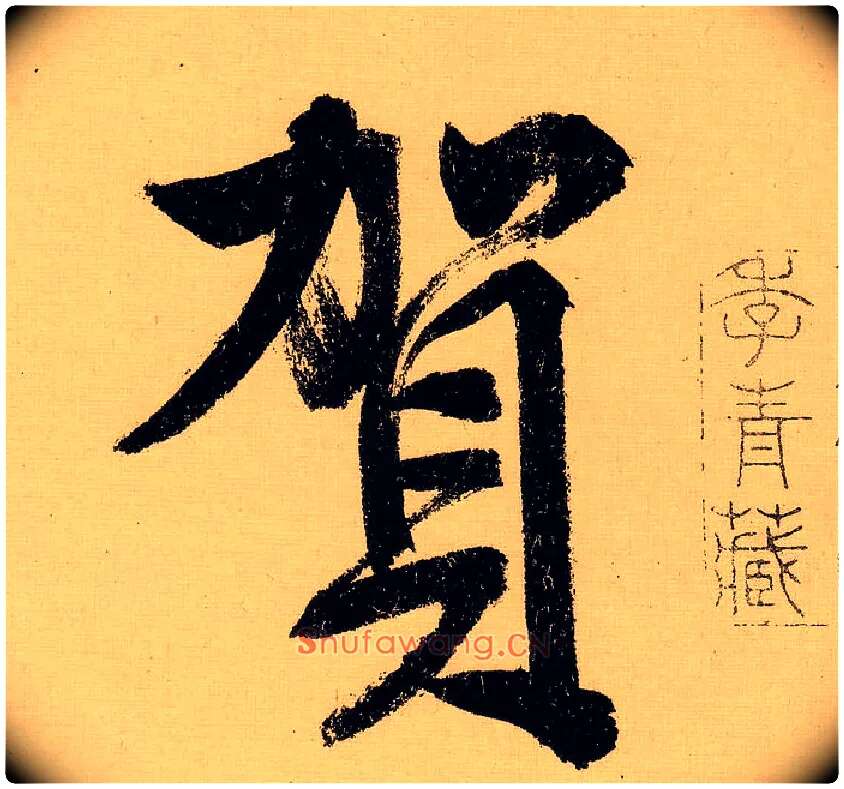 賀
李青藏
Shufawang.CN